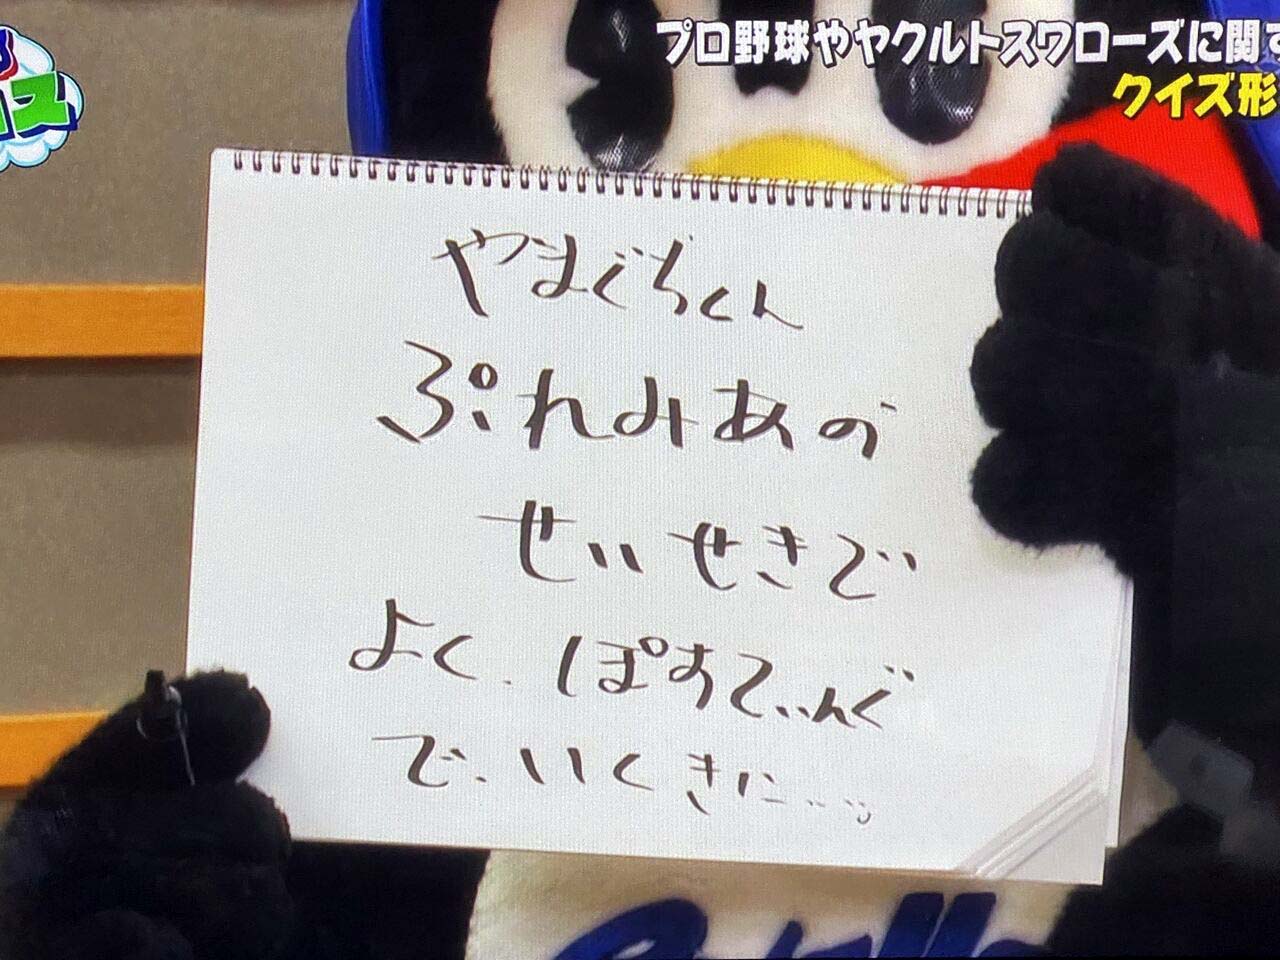 プロ野球やヤクルトスワローズに関す
クイズ形
やまぐちくん
ぷれみあの
せいせきで
よく、ぽすてぃんぐ
で、いくきに…